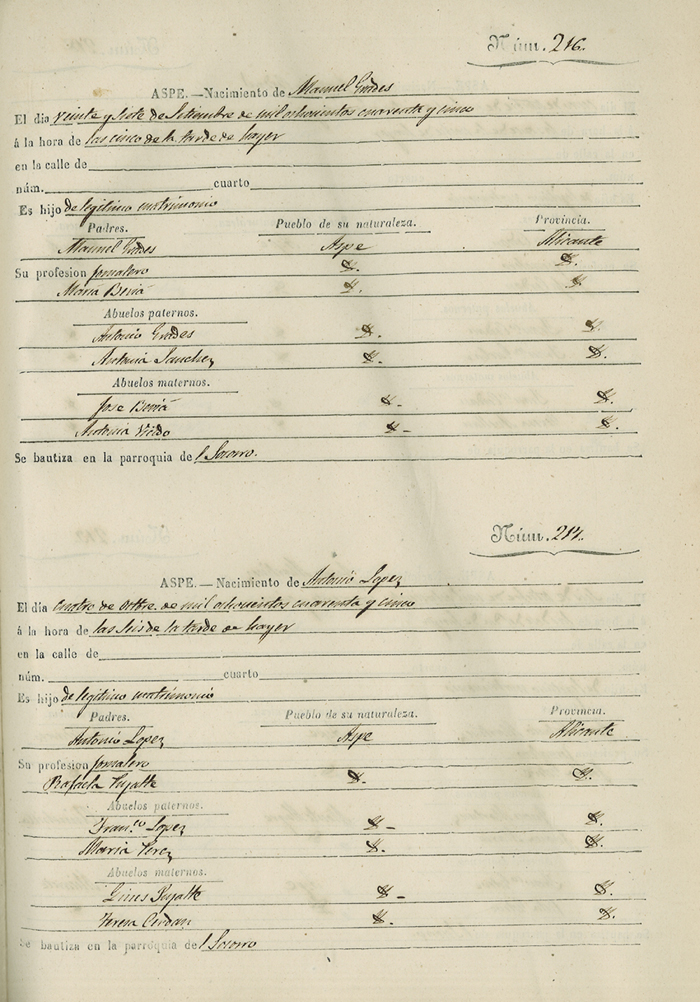 Núm. 216.
ASPE.—Nacimiento de Manuel
El dia veinte y siete de Setiembre de mil ochocientos cuarenta y cinco
á la hora de las cinco de la tarde de hayer
en la calle de
núm. cuarto
Es hijo de legitimo matrimonio
Padres. Pueblo de su naturaleza. Provincia.
Manuel Aspe Alicante
Su profesion jornalero
Maria
Abuelos paternos.
Antonio
Antonia Sanchez
Abuelos maternos.
Jose
Antonia
Se bautiza en la parroquia de l Socorro.
Núm. 217.
ASPE.—Nacimiento de Antonio Lopez
El día cuatro de Octre. de mil ochocientos cuarenta y cinco
á la hora de las seis de la tarde de hayer
en la calle de
núm. cuarto
Es hijo de legitimo matrimonio
Padres. Pueblo de su naturaleza. Provincia.
Antonio Lopez Aspe Alicante
Su profesion jornalero
Rafaela
Abuelos paternos.
Fran.co Lopez
Maria Perez
Abuelos maternos.
Gines
Teresa Cerdan
Se bautiza en la parroquia de l Socorro